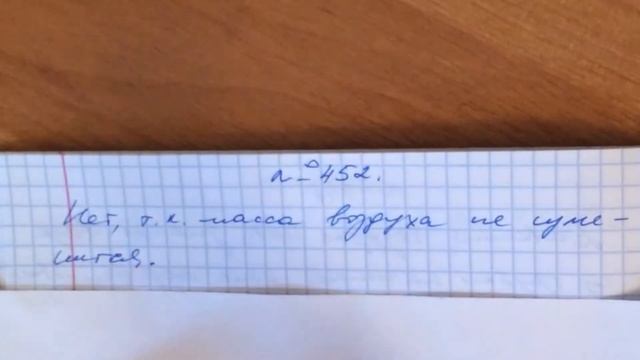 № 452.
Нет, т.к. масса воздуха не изме-
нится.